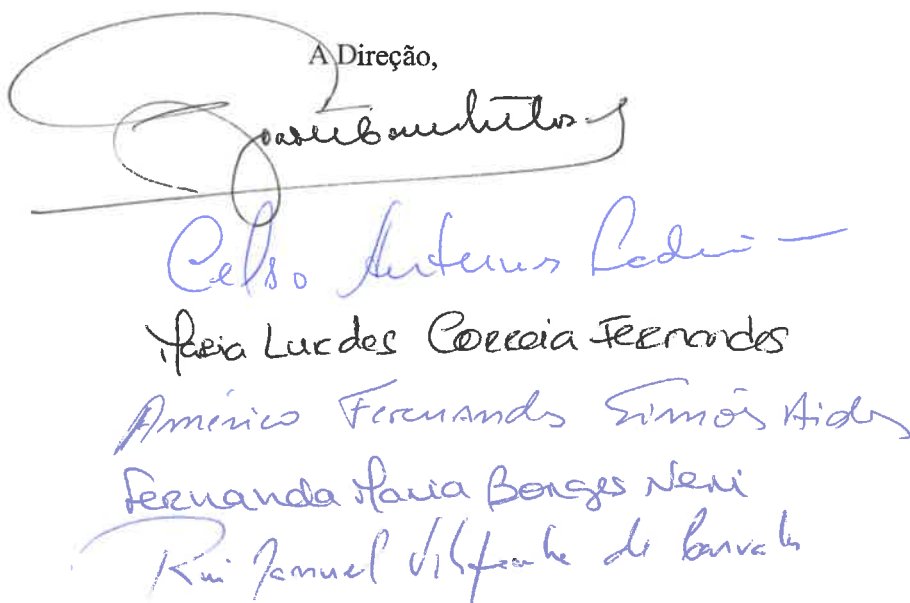 A Direção,
Celso Antunes
Maria Lurdes Correia Fernandes
Américo Fernando Simões
Fernanda Maria Borges Neri
Rui Manuel de Carvalho